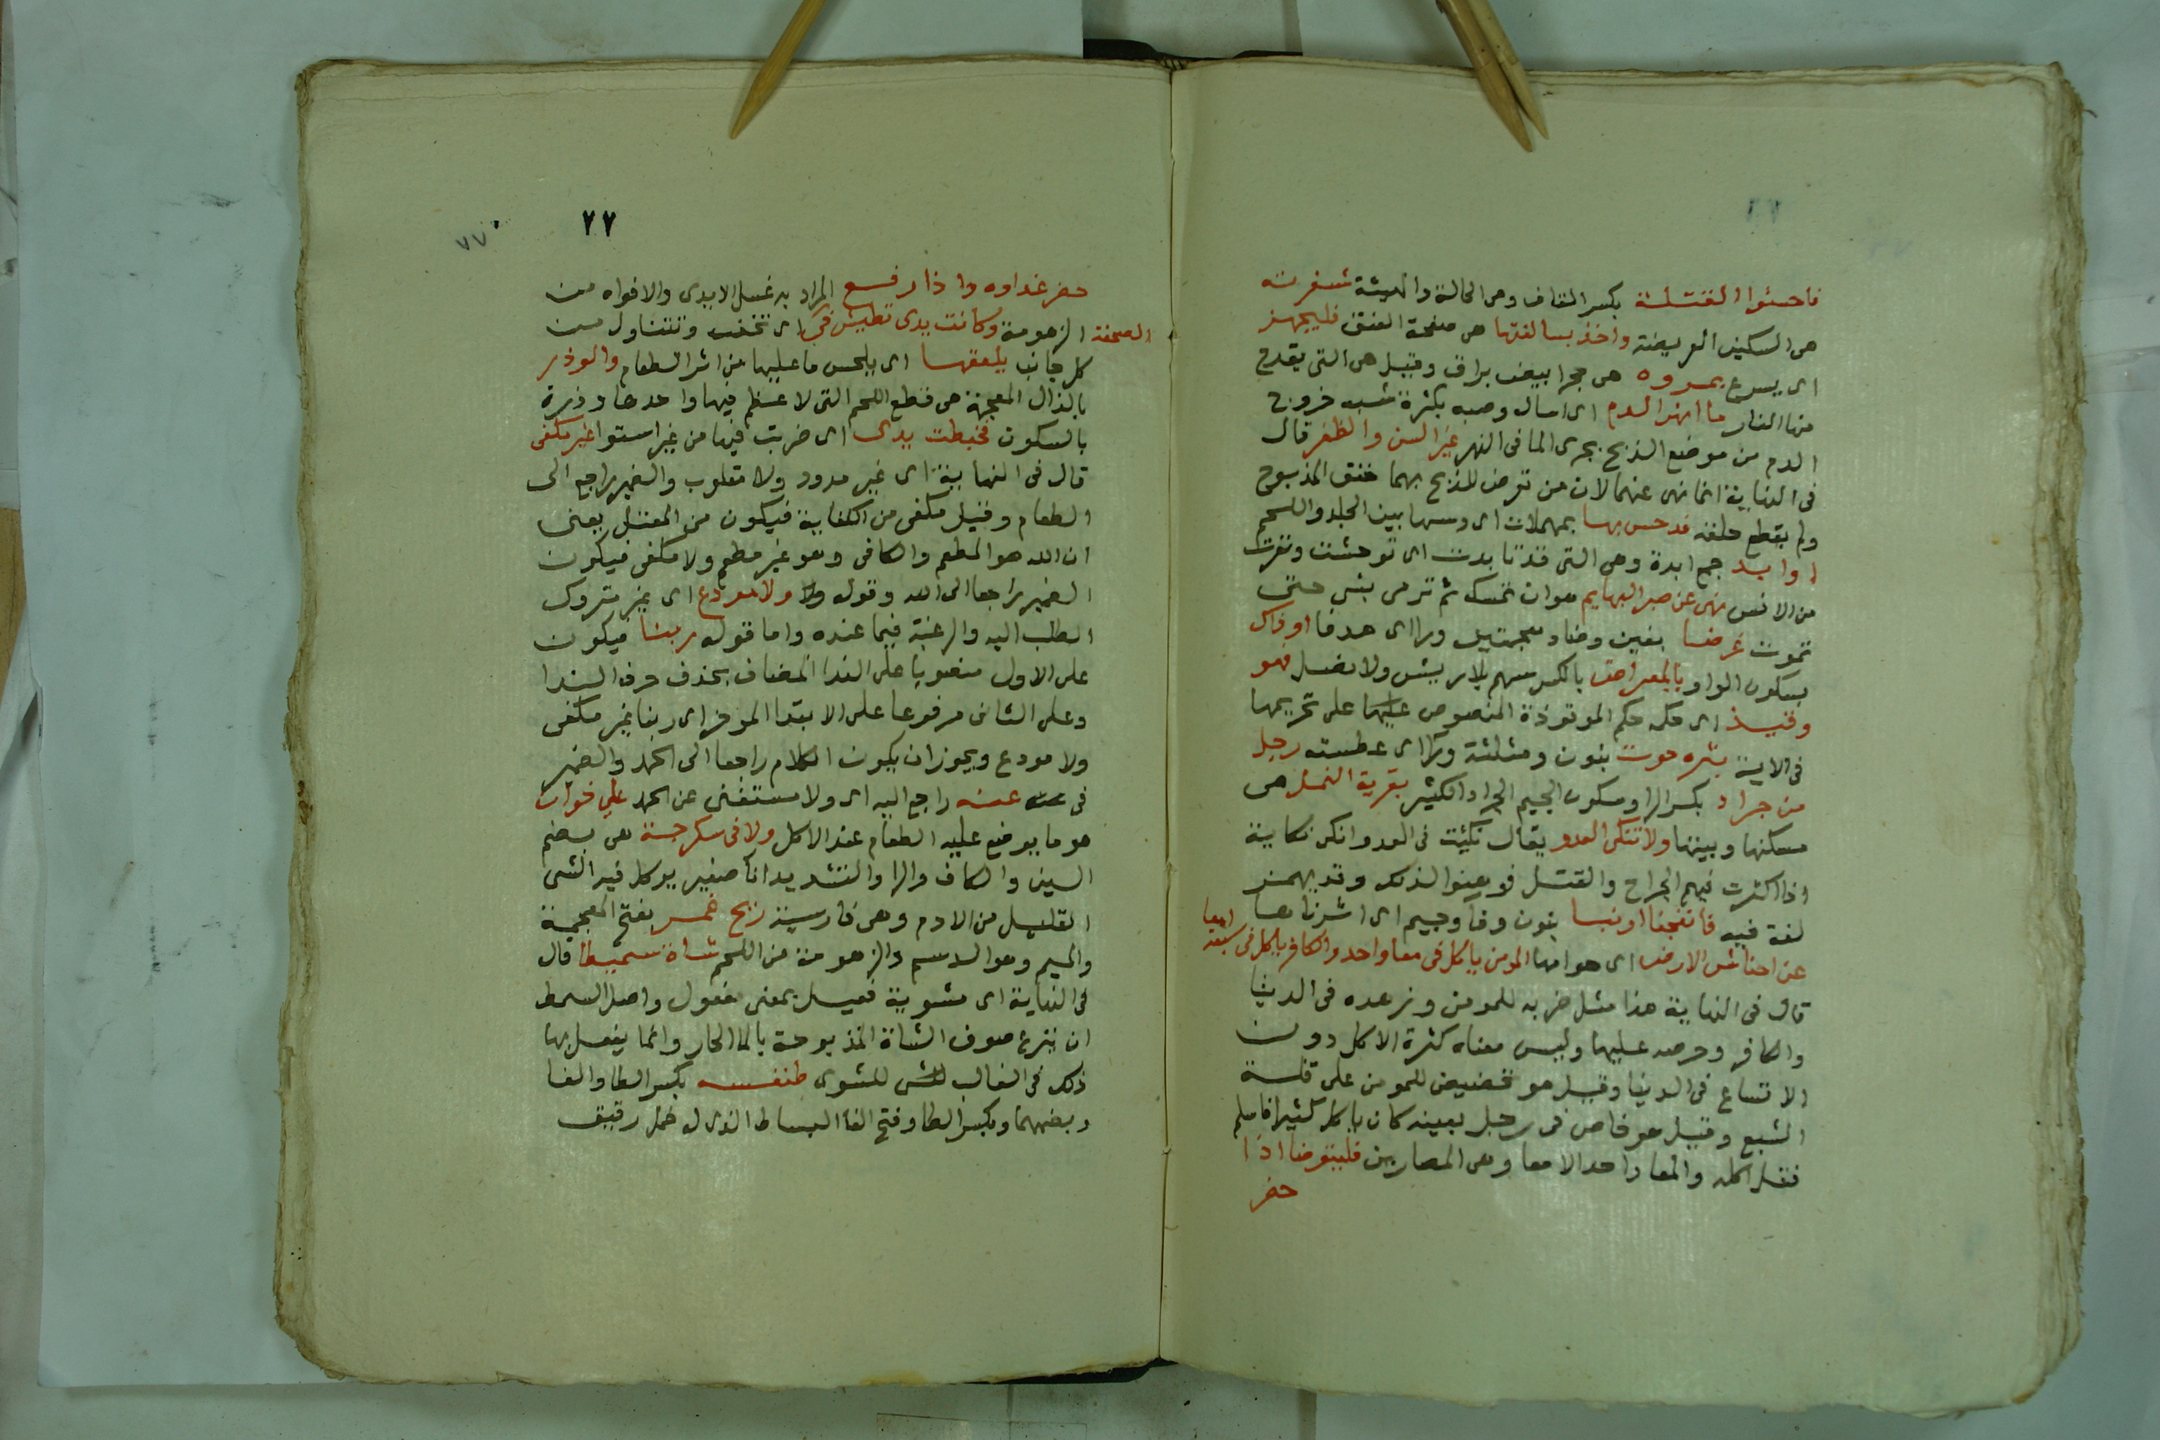 فاحسنوا القتلة بكسر القاف وهى الحالة والهيئة شفرته
هى السكين العريضة واخذ بسالفتها هى صفحة العنق فليجهز
اى يسرع بمروه هى حجر ابيض براق وقيل هى التى يقدح
منها النار ما انهر الدم اى اسال وصبه بكثرة شبه خروج
الدم من موضع الذبح بجرى الما فى النهر غير السن والظفر قال
فى النهاية انما نهى عنهما لان من تعرض للذبح بهما خنق المذبوح
ولم يقطع حلقه فدحس بها بمهملات اى دسها بين الجلد واللحم
اوابد جمع ابدة وهى التى قد تابدت اى توحشت ونفرت
من الانس نهى عن صبر البهايم هو ان تمسك ثم ترمى بشى حتى
تموت غرضا بغين وضاد معجمتين ورا اى هدفا اوذاك
بسكون الواو بالمعراض بالكسر سهم بلا ريش ولا نصل فهو
وقيذ اى حكمه حكم الموقوذة المنصوص عليها على تحريمها
فى الاية نثره حوت بنون ومثلثة ورا اى عطسته رجل
من جراد بكسر الرا وسكون الجيم الجراد الكثير بقرية النمل هى
مسكنها وبيتها ولا تنكى العدو يقال نكيت فى العدو انكى نكاية
اذا اكثرت فيهم الجراح والقتل فوهنوا لذلك وقد يهمز
لغة فيه فانفجنا ارنبا بنون وفا وجيم اى اثرناها
عن احناش الارض اى هوامها المومن ياكل فى معا واحد والكافر ياكل فى سبعة
امعا
قال فى النهاية هذا مثل ضربه للمومن وزهده فى الدنيا
والكافر وحرصه عليها وليس معناه كثرة الاكل دون
الاتساع فى الدنيا وقيل هو تخصيص للمومن على قلة
الشبع وقيل هو خاص فى رجل بعينه كان ياكل كثيرا فاسلم
فقل اكله والمعا واحد الامعا وهى المصارين فليتوضا اذا
حضر
٧٧
٧٧
حضر غداوه واذا رفع المراد به غسل الايدى والافواه من
الزهومة وكانت يدى تطيش فى اى تخف وتتناول من
الصحفة
كل جانب يلعقها اى يلحس ما عليها من اثر الطعام والوذر
بالذال المعجمة هى قطع اللحم التى لا عظم فيها واحدها وذرة
بالسكون فخبطت يدى اى ضربت فيها من غير استوا غير مكفى
قال فى النهاية اى غير مردود ولا مقلوب والضمير راجع الى
الطعام وقيل مكفى من الكفاية فيكون من المعتل يعنى
ان الله هو المطعم والكافى وهو غير مطعم ولا مكفى فيكون
الضمير راجعا الى الله وقوله ولا مودع اى غير متروك
الطلب اليه والرغبة فيما عنده واما قوله ربنا فيكون
على الاول منصوبا على الندا المضاف بحذف حرف الندا
وعلى الثانى مرفوعا على الابتدا الموخر اى ربنا غير مكفى
ولا مودع ويجوز ان يكون الكلام راجعا الى الحمد والضمير
فى عنه راجع اليه اى ولا مستغنى عن الحمد على خوان
هو ما يوضع عليه الطعام عند الاكل ولا فى سكرجة هى بضم
السين والكاف والرا والتشديد انا صغير يوكل فيه الشى
القليل من الادم وهى فارسية ريح غمر بفتح المعجمة
والميم وهو الدسم والزهومة من اللحم شاة سميطا قال
فى النهاية اى مشوية فعيل بمعنى مفعول واصل السمط
ان ينزع صوف الشاة المذبوحة بالما الحار وانما يفعل بها
ذلك فى الغالب لتشوى طنفسه بكسر الطا والفا
وبضمهما وبكسر الطا وفتح الفا البساط الذى له خمل رقيق